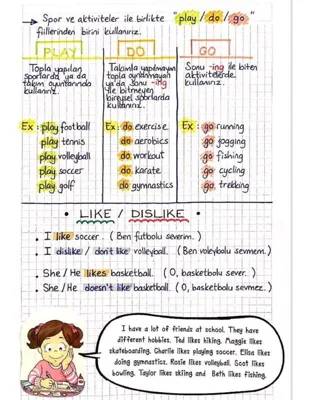 Spor ve aktiviteler ile birlikte "play / do / go"
fiillerinden birini kullanırız.
PLAY
DO
GO
Topla yapılan
sporlarda ya da
takım oyunlarında
kullanılır.
Takımla yapılmayan
topla oynanmayan
ya da sonu -ing
ile bitmeyen
bireysel sporlarda
kullanılır.
Sonu -ing ile biten
aktivitelerde
kullanılır.
Ex : play football
play tennis
play volleyball
play soccer
play golf
Ex : do exercise
do aerobics
do workout
do karate
do gymnastics
Ex : go running
go jogging
go fishing
go cycling
go trekking
LIKE / DISLIKE
I like soccer. ( Ben futbolu severim. )
I dislike / don't like volleyball. ( Ben voleybolu sevmem. )
She / He likes basketball. ( O, basketbolu sever. )
She / He doesn't like basketball. ( O, basketbolu sevmez. )
I have a lot of friends at school. They have
different hobbies. Ted likes hiking. Maggie likes
skateboarding. Charlie likes playing soccer. Elisa likes
doing gymnastics. Rosie likes volleyball. Scot likes
bowling. Taylor likes skiing and Beth likes fishing.